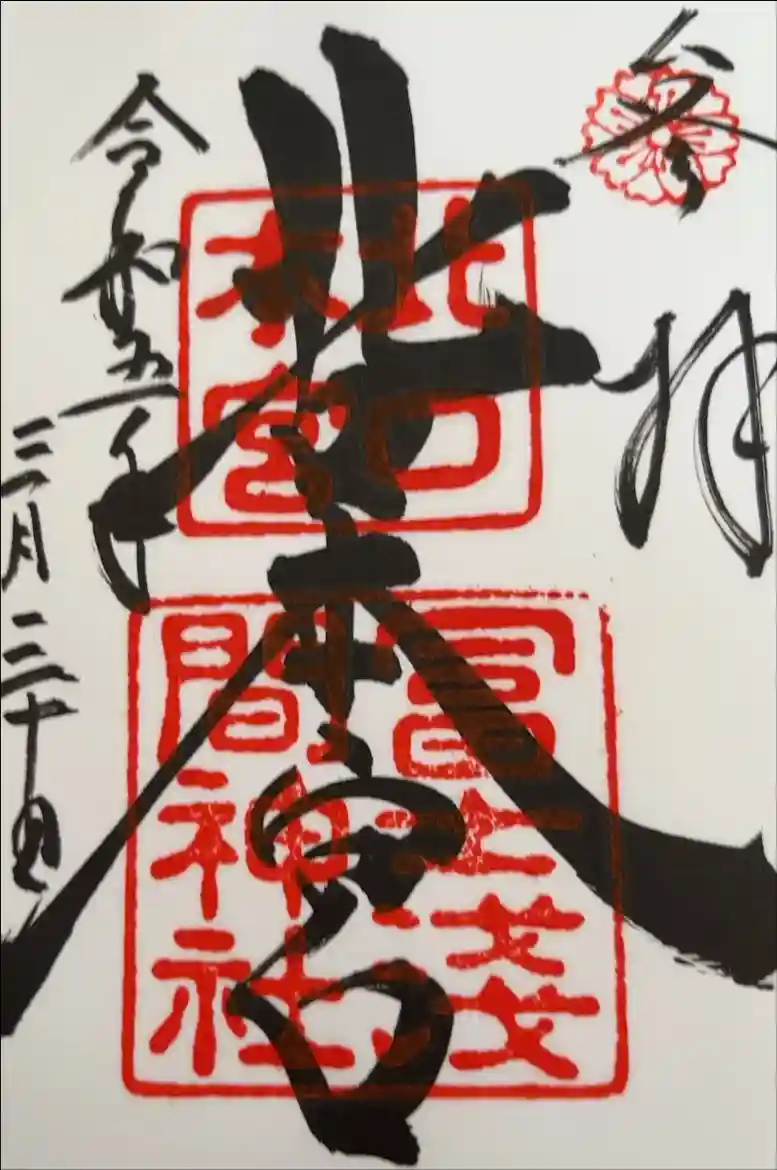 参拝
北口本宮
北口
本宮
冨士淺
間神社
令和五年
三月三十日